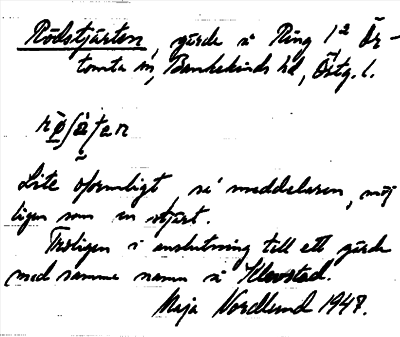 Rödstjärten, gärde å Ring 1² Ör-
tomta sn, Bankekinds hd, Östg. l.
Lite oformligt, sa' meddelaren, möj
ligen som en stjärt.
Troligen i anslutning till ett gärde
med samma namn å Klevstad.
Maja Nordlund 1947.